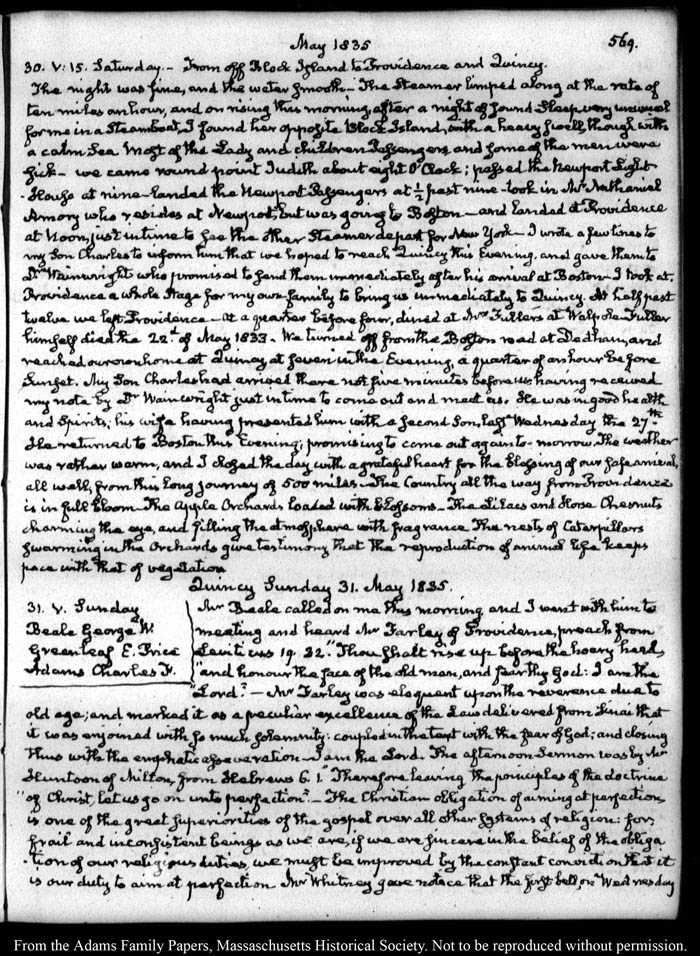 May 1835
569.
30. V: 15. Saturday.- From off Block Island to Providence and Quincy.
The night was fine, and the water smooth - The Steamer limped along at the rate of
ten miles an hour, and on rising this morning, after a night of sound Sleep very unusual
for me in a Steamboat, I found her opposite Block Island, with a heavy swell, though with
a calm Sea. Most of the Lady and children Passengers and some of the men were
sick - we came round point Judith about eight O'Clock; passed the Newport Light-
-House at nine - landed the Newport Passengers at ½ past nine - took in Mr Nathaniel
Amory who resides at Newport, but was going to Boston - and landed at Providence
at Noon, just in time to see the other Steamer depart for New York - I wrote a few lines to
my Son Charles to inform him that we hoped to reach Quincy this Evening, and gave them to
Dr Wainwright who promised to send them immediately after his arrival at Boston - I took at
Providence a whole Stage for my own family to bring us immediately to Quincy. At half past
twelve we left Providence - at a quarter before four, dined at Mrs Fullers at Walpole. Fuller
himself died the 22d of May 1833. We turned off from the Boston road at Dedham, and
reached our own home at Quincy at seven in the Evening, a quarter of an hour before
Sunset. My Son Charles had arrived there not five minutes before us having received
my note by Dr Wainwright just in time to come out and meet us. He was in good health
and Spirits; his wife having presented him with a second Son, last Wednesday the 27th
He returned to Boston this Evening; promising to come out again to-morrow. The weather
was rather warm, and I closed the day with a grateful heart for the Blessing of our safe arrival,
all well, from this long journey of 500 miles - The Country all the way from Providence
is in full bloom - The Apple Orchards loaded with blossoms - The Lilacs and Horse Chesnuts
charming the eye, and filling the atmosphere with fragrance. The nests of Caterpillars
swarming in the Orchards give testimony that the reproduction of animal life keeps
pace with that of vegetation
Quincy Sunday 31. May 1835.
31. V. Sunday
Beale George W.
Greenleaf E. Price
Adams Charles F.
Mr Beale called on me this morning and I went with him to
meeting and heard Mr Farley of Providence, preach from
Leviticus 19. 32. Thou shalt rise up before the hoary head,
"and honour the face of the old man, and fear thy God: I am the
"Lord." - Mr Farley was eloquent upon the reverence due to
old age; and marked it as a peculiar excellence of the Law delivered from Sinai that
it was enjoined with so much solemnity: coupled in the text with the fear of God; and closing
thus with the emphatic asseveration - I am the Lord. The afternoon Sermon was by Mr
Huntoon of Milton, from Hebrews 6. 1. "Therefore leaving the principles of the doctrine
"of Christ, let us go on unto perfection". - The Christian obligation of aiming at perfection,
is one of the great superiorities of the gospel over all other Systems of religion: for,
frail and inconsistent beings as we are, if we are sincere in the belief of the obliga
-tion of our religious duties, we must be improved by the constant conviction that it
is our duty to aim at perfection. Mr Whitney gave notice that the first bell, on Wednesday
From the Adams Family Papers, Massachusetts Historical Society. Not to be reproduced without permission.